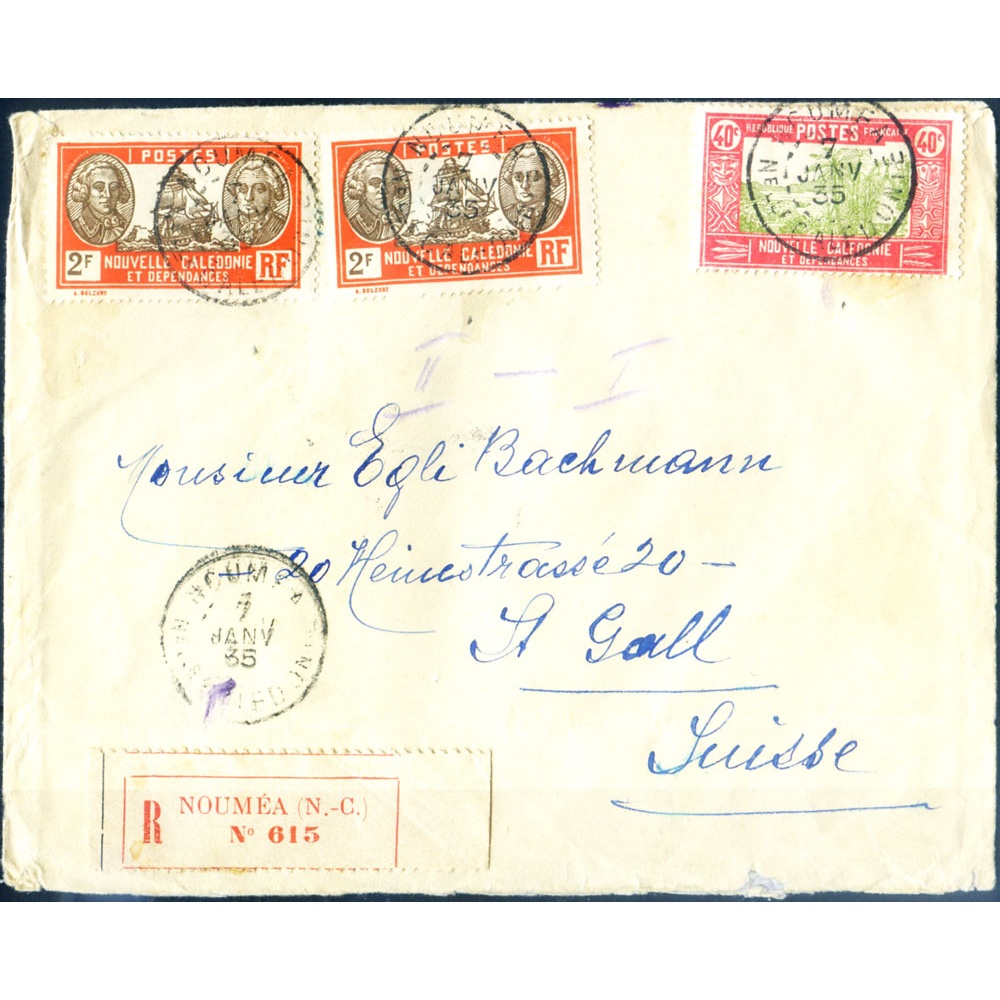 POSTES
2F NOUVELLE CALÉDONIE RF
ET DÉPENDANCES
POSTES
2F NOUVELLE CALÉDONIE RF
ET DÉPENDANCES
40c RÉPUBLIQUE POSTES FRANÇAISE 40c
NOUVELLE CALÉDONIE
ET DÉPENDANCES
NOUMEA
7
JANV
35
NOUMEA
7
JANV
35
II — I
Monsieur Egli Bachmann
20 Heinestrassé 20 –
St Gall
Suisse
NOUMEA
7
JANV
35
R NOUMÉA (N.-C.)
Nº 615